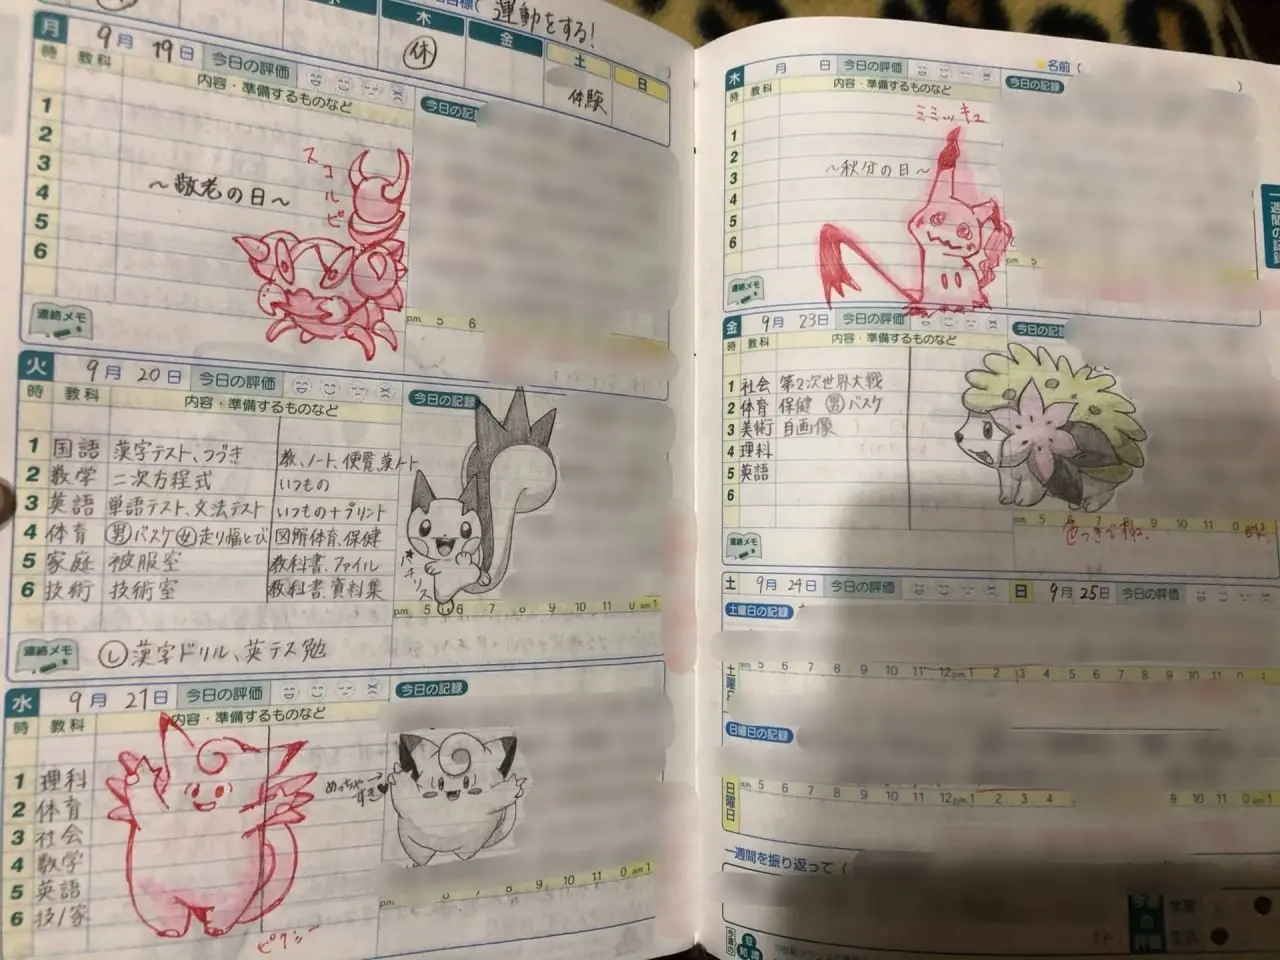 運動をする!
木
金
土
日
休
体験
月 9月 19日 今日の評価
時 教科 内容・準備するものなど
今日の記
1
2
3
4
5
6
~敬老の日~
スコルピ
連絡メモ
pm 5 6
火 9月 20日 今日の評価
時 教科 内容・準備するものなど
今日の記録
1 国語 漢字テスト、つづき 教、ノート、便覧、漢ノート
2 数学 二次方程式 いつもの
3 英語 単語テスト、文法テスト いつもの+プリント
4 体育 男バスケ 女走り幅とび 図解体育、保健
5 家庭 被服室 教科書、ファイル
6 技術 技術室 教科書、資料集
パチリス
pm 5 6 7 8 9 10 11 0 am 1
連絡メモ Ⓛ漢字ドリル、英テス勉
水 9月 21日 今日の評価
時 教科 内容・準備するものなど
今日の記録
1 理科
2 体育
3 社会
4 数学
5 英語
6 技/家
めっちゃすき♥
ピクシー
pm 7 8 9 10 11 0 am 1
名前(
木 月 日 今日の評価
時 教科 内容・準備するものなど
今日の記録
1
2
3
4
5
6
ミミッキュ
~秋分の日~
pm 5
連絡メモ
一週間の記録
金 9月 23日 今日の評価
時 教科 内容・準備するものなど
今日の記録
1 社会 第2次世界大戦
2 体育 保健 男バスケ
3 美術 自画像
4 理科
5 英語
6
pm 5 6 7 8 9 10 11 0
色つきですね。
連絡メモ
土 9月 24日 今日の評価
日 9月 25日 今日の評価
土曜日の記録
土曜日
am 5 6 7 8 9 10 11 12 pm 1 2 3 4 5 6 7 8 9 10 11 0
日曜日の記録
日曜日
am 5 6 7 8 9 10 11 12 pm 1 2 3 4 9 10 11 0 am 1
一週間を振り返って(
豆知識